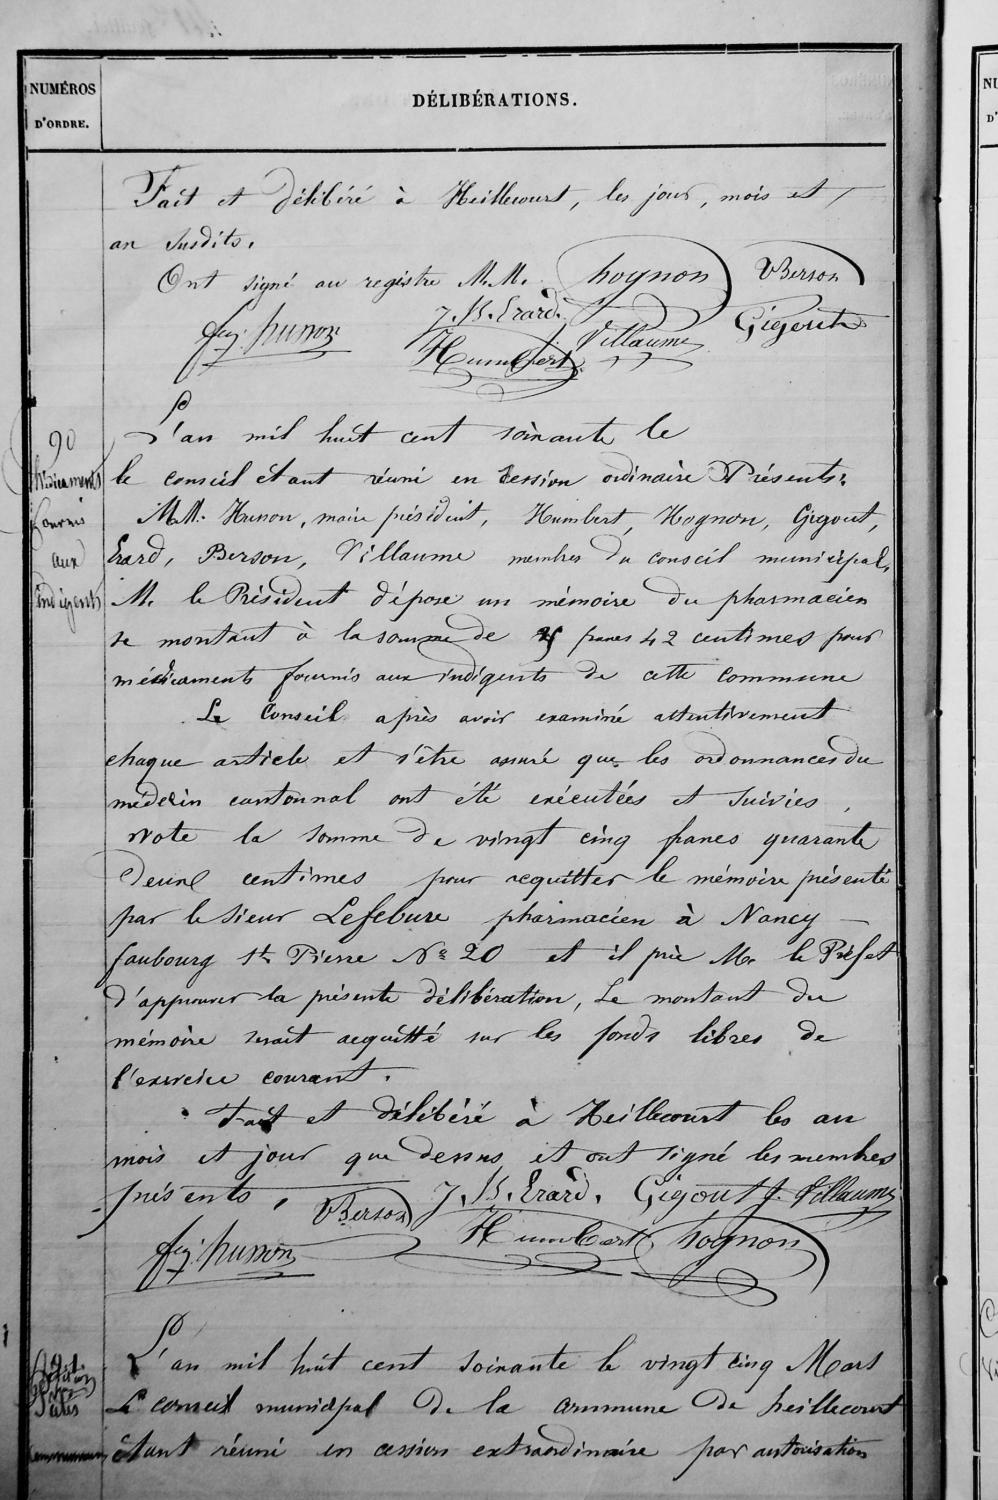 NUMÉROS
D'ORDRE.
DÉLIBÉRATIONS.
Fait et délibéré à Heillecourt, les jour, mois et
an susdits.
Ont signé au registre M.M. hognon Berson
J. B. Erard. Gigout
husson Humbert Villaume
L'an mil huit cent soixante le
90
Médicaments
fournis
aux
indigents
le conseil étant réuni en session ordinaire Présents:
M.M. Husson, maire président, Humbert, Hognon, Gigout,
Erard, Berson, Villaume membres du conseil municipal,
M. le Président dépose un mémoire du pharmacien
se montant à la somme de 25 francs 42 centimes pour
médicaments fournis aux indigents de cette commune
Le Conseil après avoir examiné attentivement
chaque article et s'être assuré que les ordonnances du
médecin cantonnal ont été exécutées et suivies,
vote la somme de vingt cinq francs quarante
deux centimes pour acquitter le mémoire présenté
par le sieur Lefebure pharmacien à Nancy
faubourg St Pierre No 20 et il prie Mr le Préfet
d'approuver la présente délibération, Le montant du
mémoire serait acquitté sur les fonds libres de
l'exercice courant.
Fait et délibéré à Heillecourt les an
mois et jour que dessus et ont signé les membres
présents, Berson J. B. Erard. Gigout J. Villaume
husson Humbert hognon
L'an mil huit cent soixante le vingt cinq Mars
Le conseil municipal de la commune de heillecourt
étant réuni en cession extraordinaire par autorisation